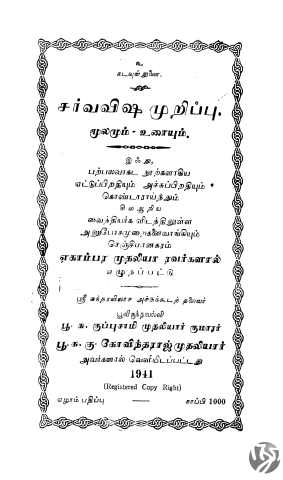 உ
கடவுள் துணை.
சர்வவிஷ முறிப்பு.
மூலமும் - உரையும்.
இஃது,
பற்பலவாகட நூற்களாகிய
ஏட்டுப்பிரதியும் அச்சுப்பிரதியும்
கொண்டாராய்ந்தும்
சிலஆரிய
வைத்தியர்கவிடத்திலுள்ள
அனுபோகமுறைகளைவாங்கியும்
செஞ்சிமாநகரம்
ஏகாம்பர முதலியா ரவர்களால்
எழுதப்பட்டு
ஸ்ரீ சுந்தரவிலாச அச்சுக்கூடத் தலைவர்
பூவிருந்தவல்லி
பூ. சு. குப்புசாமி முதலியார் குமாரர்
பூ. சு. கு. கோவிந்தராஜ்முதலியார்
அவர்களால் வெளியிடப்பட்டது
1941
(Registered Copy Right)
ஏழாம் பதிப்பு காப்பி 1000